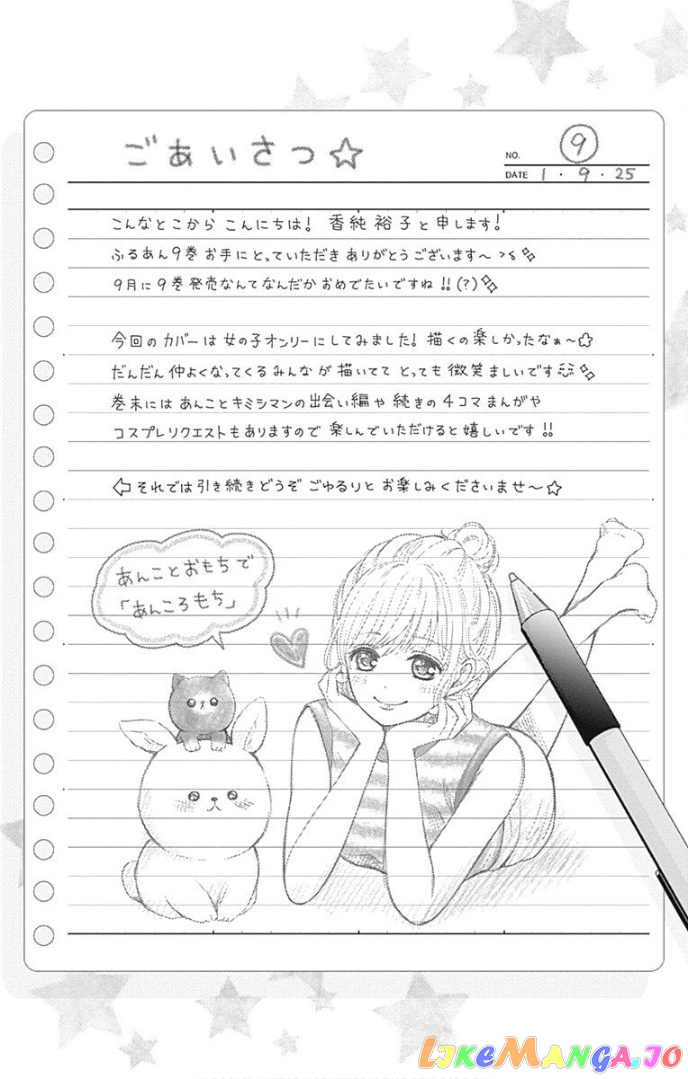 ごあいさつ☆
NO. 9
DATE 1・9・25
こんなとこから こんにちは! 香純 裕子と申します!
ふるあん9巻 お手にとっていただき ありがとう ございます〜
9月に9巻発売なんて なんだか おめでたいですね!!(?)
今回の カバーは 女の子オンリーにしてみました! 描くの楽しかったなぁ〜☆
だんだん仲よくなってくる みんなが 描いてて とっても 微笑ましいです
巻末には あんことキミシマンの出会い編や 続きの 4コマ まんがや
コスプレリクエストも ありますので 楽しんでいただけると 嬉しいです!!
⇦それでは引き続きどうぞ ごゆるりと お楽しみくださいませ〜☆
あんことおもちで
「あんころもち」
LIKEMANGA.IO